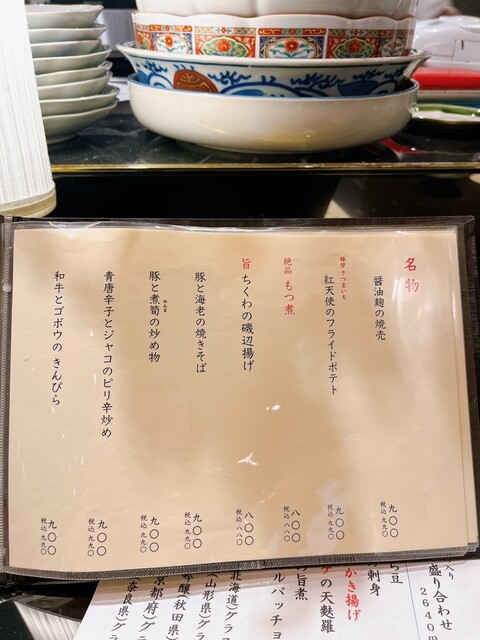 名物
醤油麹の焼売
九〇〇
税込 九九〇
極甘 さつまいも
紅天使のフライドポテト
九〇〇
税込 九九〇
絶品 もつ煮
八〇〇
税込 八八〇
旨 ちくわの磯辺揚げ
八〇〇
税込 八八〇
豚と海老の焼きそば
九〇〇
税込 九九〇
豚と煮筍の炒め物
めんま
九〇〇
税込 九九〇
青唐辛子とジャコのピリ辛炒め
九〇〇
税込 九九〇
和牛とゴボウのきんぴら
九〇〇
税込 九九〇
入り
盛り合わせ
2640
ら豆
刺身
かき揚げ
の天麩羅
の旨煮
ルパッチョ
北海道)グラ
山形県)グ
吟醸 秋田県)グ
京都府)グ
奈良県)グ